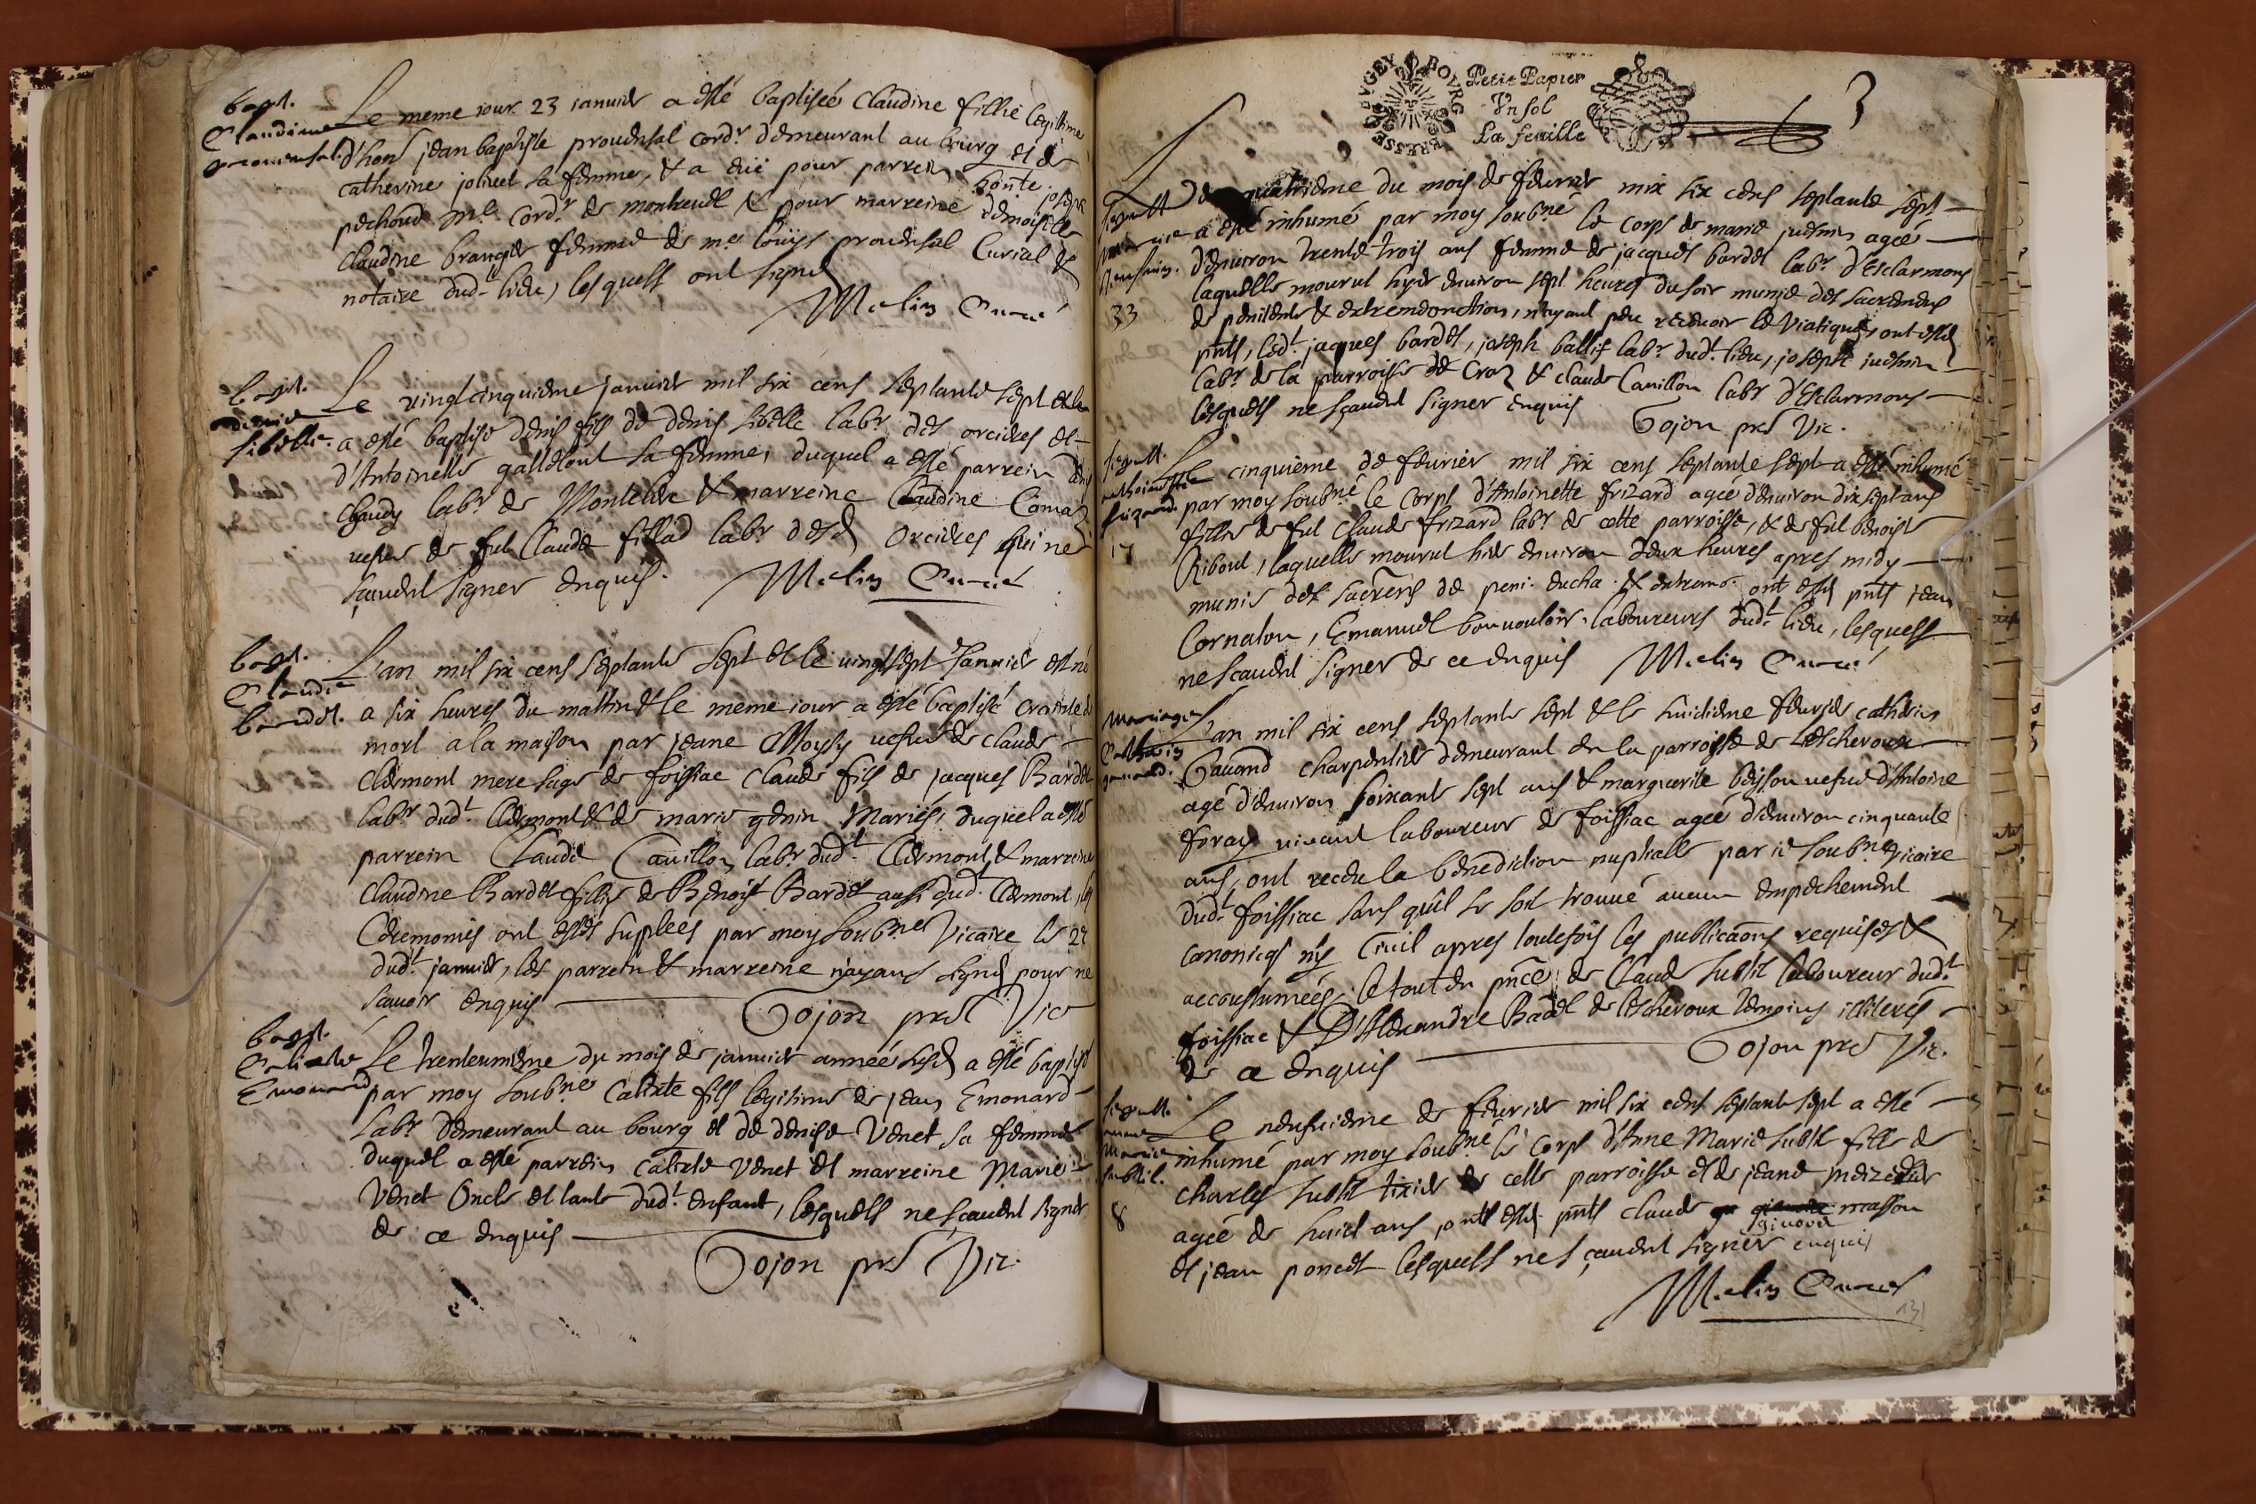 bapt.
Claudine
prouensal.
Le meme iour 23 ianuier a esté baptisée Claudine fillie legitime
d'hons jean baptiste prouensal cordr demeurant au bourg et de
catherine joliuet sa femme, & a eüe pour parrein honte joseph
pechoud me. cordr de montreuel & pour marreine demoiselle
claudine brangier femme de me loüys prouensal Curial et
notaire dudt lieu, lesquells ont signé
Merlin Curé
bapt.
denis
sibelle.
Le uingtcinquieme januier mil six cens septante sept
a esté baptise denis fils de denis sibelle labr des orcieres et
d'Antoinette sa femme, duquel a esté parrein
labr de & marreine Claudine
uefue de fut Claude fillad labr desd Orcieres qui ne
sçauent signer enquis.
Merlin Curé
bapt.
Claude
bardet.
L'an mil six cens septante sept et le uingtsept Januier est né
a six heures du mattin & le meme iour a esté baptisé crainte de
mort a la maison par jeane Moysy uefue de claude
Clermont mere sage de foissiac Claude fils de jacques Bardet
labr dudt Clermont & de marie genin Mariés, duquel a esté
parrein Claude Cauillon labr dudt Clermont, & marreine
Claudine Bardet fillie de Benoist Bardet aussi dudt Clermont, les
Ceremonies ont estés supplées par moy soubné Vicaire le 27
dudt januier, les parrein & marreine n'ayans signé pour ne
sauoir enquis
Gojon pre Vic
bapt.
Calixte
Emonard
Le trenteunieme du mois de januier année susd a esté baptisé
par moy soubné Calixte fils legitime de jean Emonard
labr demeurant au bourg et de denise Venet sa femme
duquel a esté parrein calixte Venet et marreine Marie
Venet Oncle et tante dudt enfant, lesquells ne sçauent signer
de ce enquis
Gojon pre Vic.
BRESSE BVGEY BOVRG
Petit Papier
Vn sol
La feuille
3
sepult.
marie
Juenin.
33
Le quatrieme du mois de feurier mil six cens septante sept
a esté inhumé par moy soubné le corps de marie juenin ageé
d'enuiron trente trois ans femme de jacques bardet labr d'Esclarmons
laquelle mourut hyer enuiron sept heures du soir munie des sacremens
de penitente & extremeonction, n'ayant peu receuoir le Viatique, ont estés
pnts, ledt jacques bardet, joseph ballif labr dudt lieu, joseph juenin
labr de la parroisse de Craz & claude Cauillon labr d'Esclarmons
lesquells ne sçauent signer enquis
Gojon pre Vic.
sepult.
anthoinette
frizard
17
Le cinquieme de feurier mil six cens septante sept a esté inhumé
par moy soubné le corps d'Antoinette frizard ageé d'enuiron dix sept ans
fillie de fut Claude frizard labr de cette parroisse, & de fut benoiste
Riboul, laquelle mourut hier enuiron deux heures apres midy
munie des sacrens de peni. eucha. & extreme. ont estés pnts jean
Cornaton, Emanuel bonuouloir laboureurs dudt lieu, lesquells
ne sçauent signer de ce enquis
Merlin Curé
mariage
Catherin
gauand.
L'an mil six cens septante sept & le huictieme feurier catherin
Gauand charpentier demeurant en la parroisse de Lescheroux
agé d'enuiron soixante sept ans & marguerite boisson uefue d'Antoine
foray uiuant laboureur de foissiac ageé d'enuiron cinquante
ans, ont receu la benediction nuptialle par ie soubné Vicaire
dudt foissiac sans qu'il se soit trouué aucun empechement
canonicq ny ciuil apres toutefois les publicaons requises &
accoustumées, le tout en pnce de Claude Subtil laboureur dudt
foissiac & D'Alexandre Badel de Lescheroux temoins illiterés
de ce enquis
Gojon pre Vic.
sepult.
anne
marie
subtil.
8
Le neufuieme de feurier mil six cens septante sept a esté
inhumé par moy soubné le corps d'Anne Marie subtil fille de
charles subtil tixier de cette parroisse et de jeane meziere
ageé de huict ans, ont estés pnts claude ginoud masson
et jean poncet lesquells ne sçauent signer enquis
Merlin Curé
131